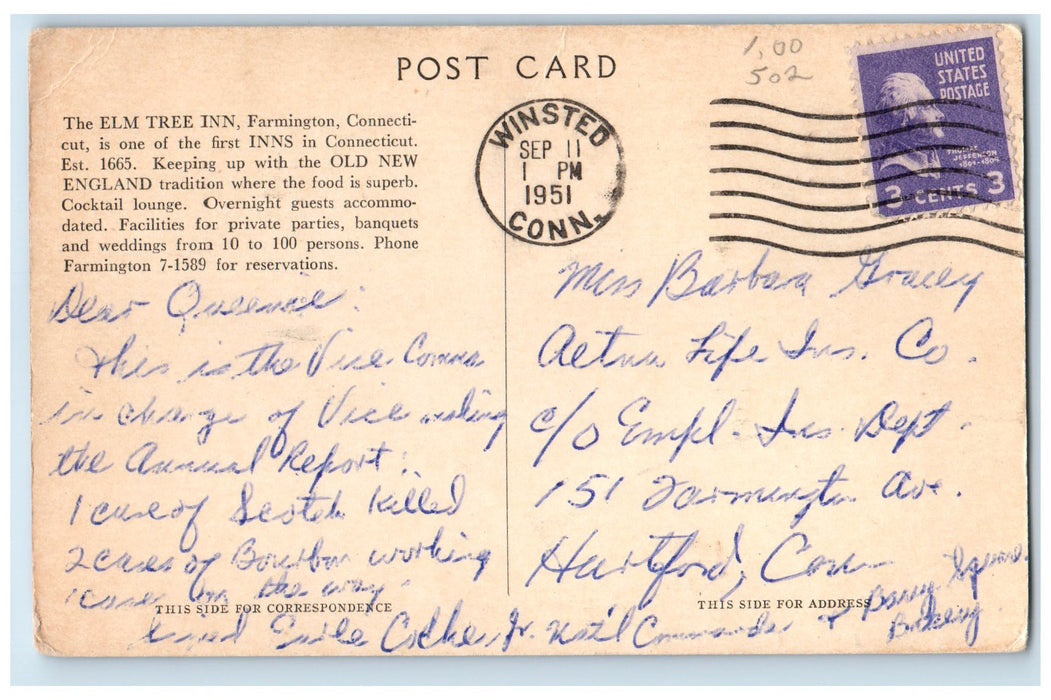 POST CARD
1,00
502
The ELM TREE INN, Farmington, Connecti-
cut, is one of the first INNS in Connecticut.
Est. 1665. Keeping up with the OLD NEW
ENGLAND tradition where the food is superb.
Cocktail lounge. Overnight guests accommo-
dated. Facilities for private parties, banquets
and weddings from 10 to 100 persons. Phone
Farmington 7-1589 for reservations.
WINSTED
SEP 11
1 PM
1951
CONN.
UNITED
STATES
POSTAGE
THOMAS
JEFFERSON
1801-1809
3 CENTS 3
Dear Queenie:
This is the Vice
in charge of Vice making
the Annual Report:
1 case of Scotch killed
2 cases of Bourbon working
1 on the way.
Jr. Nat'l Commander of
Miss Barbara Gracey
Aetna Life Ins. Co.
c/o Empl. Ins. Dept.
151 Farmington Ave.
Hartford, Conn
THIS SIDE FOR CORRESPONDENCE
THIS SIDE FOR ADDRESS